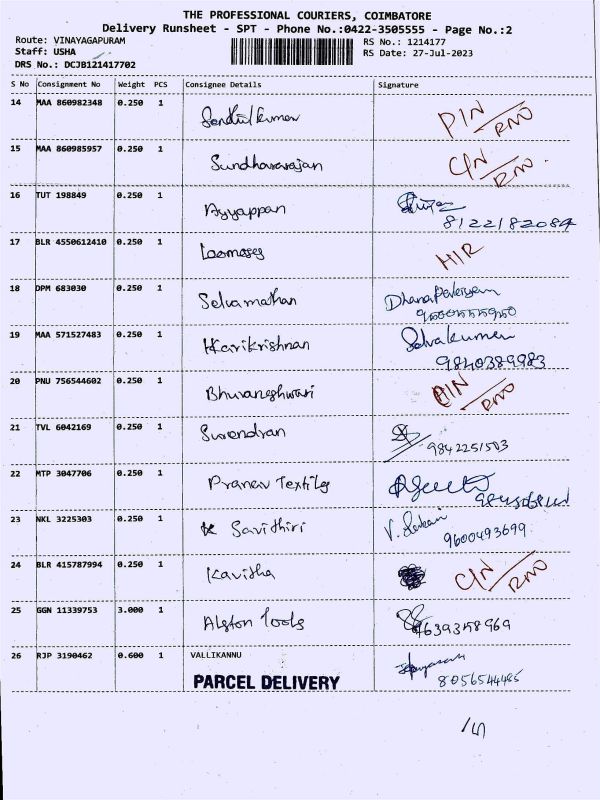 THE PROFESSIONAL COURIERS, COIMBATORE
Delivery Runsheet - SPT - Phone No.:0422-3505555 - Page No.:2
Route: VINAYAGAPURAM
RS No.: 1214177
Staff: USHA
RS Date: 27-Jul-2023
DRS No.: DCJB121417702
S No Consignment No Weight PCS Consignee Details Signature
14 MAA 860982348 0.250 1 Senthilkumar
RNO
15 MAA 860985957 0.250 1 Sundhararajan C/N
RNO
16 TUT 198849 0.250 1 Ayyappan
8122182084
17 BLR 4550612410 0.250 1 Loomoses H/R
18 DPM 683030 0.250 1 Selvamathan
19 MAA 571527483 0.250 1 Harikrishnan Selvakumar
9840389983
20 PNU 756544602 0.250 1 Bhuvaneshwari
RNO
21 TVL 6042169 0.250 1 Surendran
9842251503
22 MTP 3047706 0.250 1 Pranav Textiles
23 NKL 3225303 0.250 1 Savithiri
9600493699
24 BLR 415787994 0.250 1 Kavitha C/N
RNO
25 GGN 11339753 3.000 1 Alston Tools
26 RJP 3190462 0.600 1 VALLIKANNU
8056544485
PARCEL DELIVERY